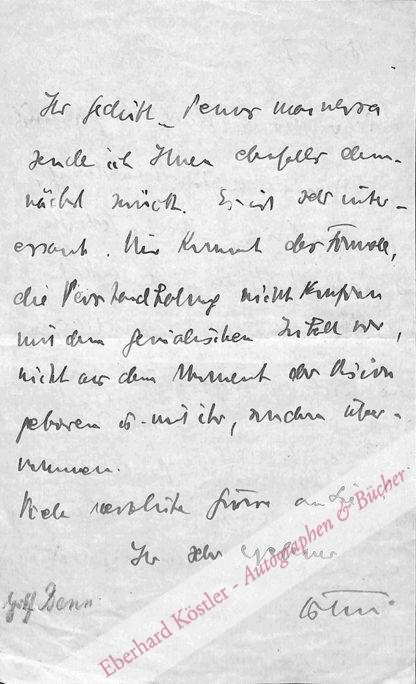 Ihr Gedicht – Venus 
sende ich Ihnen ebenfalls dem-
nächst zurück. Es ist sehr inter-
essant. Mir kommt das Formale,
die nicht konform
mit dem genialischen Inhalt vor,
nicht aus dem Moment der Vision
geboren u. mit ihr, sondern über-
nommen.
Viele herzliche Grüsse an Sie
Ihr sehr ergebener
Benn
Eberhard Köstler - Autographen & Bücher